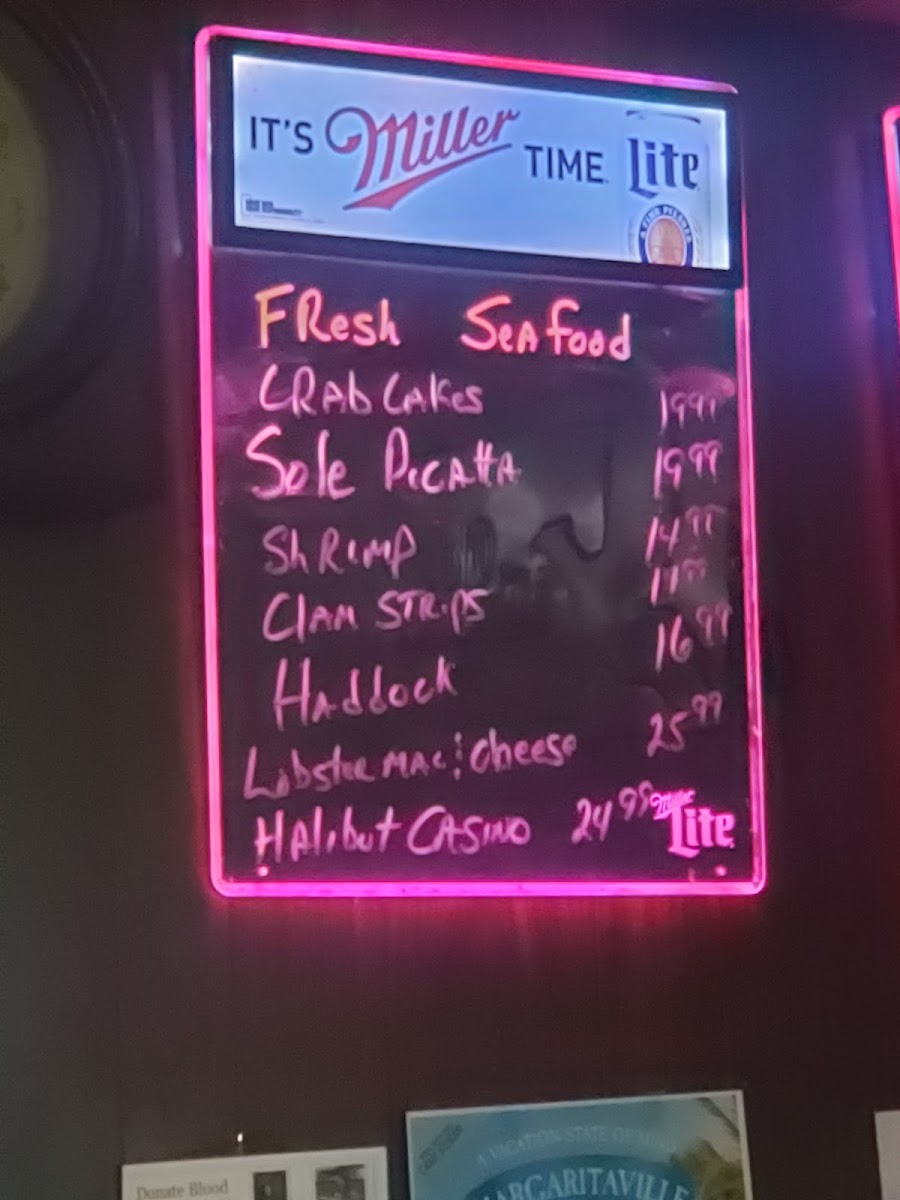 IT'S Miller TIME. Lite
A FINE PILSNER
FResh SeAfood
CRAb CAKes 19 99
Sole PicAttA 19 99
ShRimp 14 99
ClAm STRipS
HAddock 16 99
Lobster mac & Cheese 25 99
HAlibut CASINO 24 99
Miller Lite
Donate Blood
A VACATION STATE OF MIND
MARGARITAVILLE